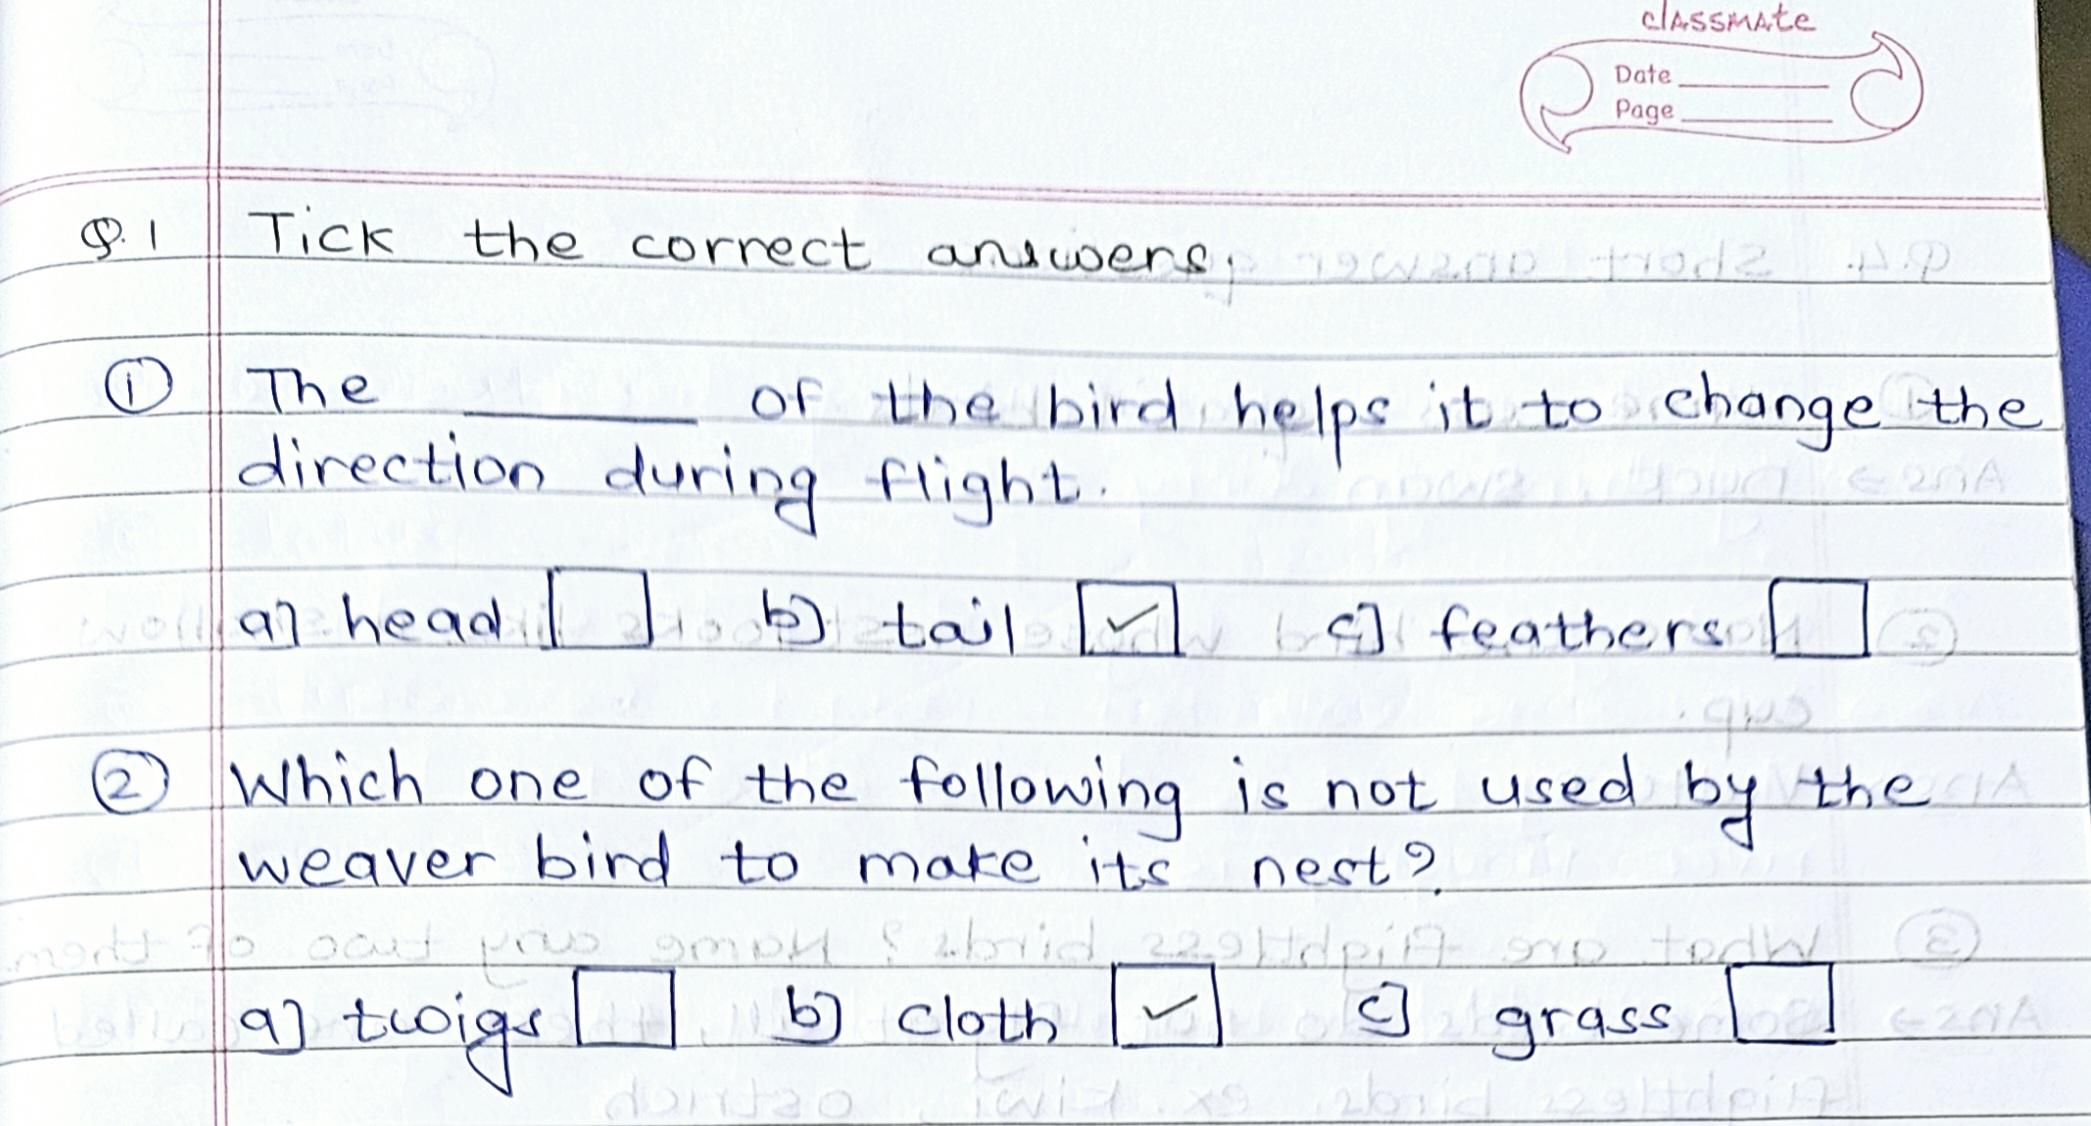 classmate
Date
Page
Q.1 Tick the correct answers.
① The ______ of the bird helps it to change the
direction during flight.
a] head ☐ b] tail ☑ c] feathers ☐
② Which one of the following is not used by the
weaver bird to make its nest?
a] twigs ☐ b] cloth ☑ c] grass ☐